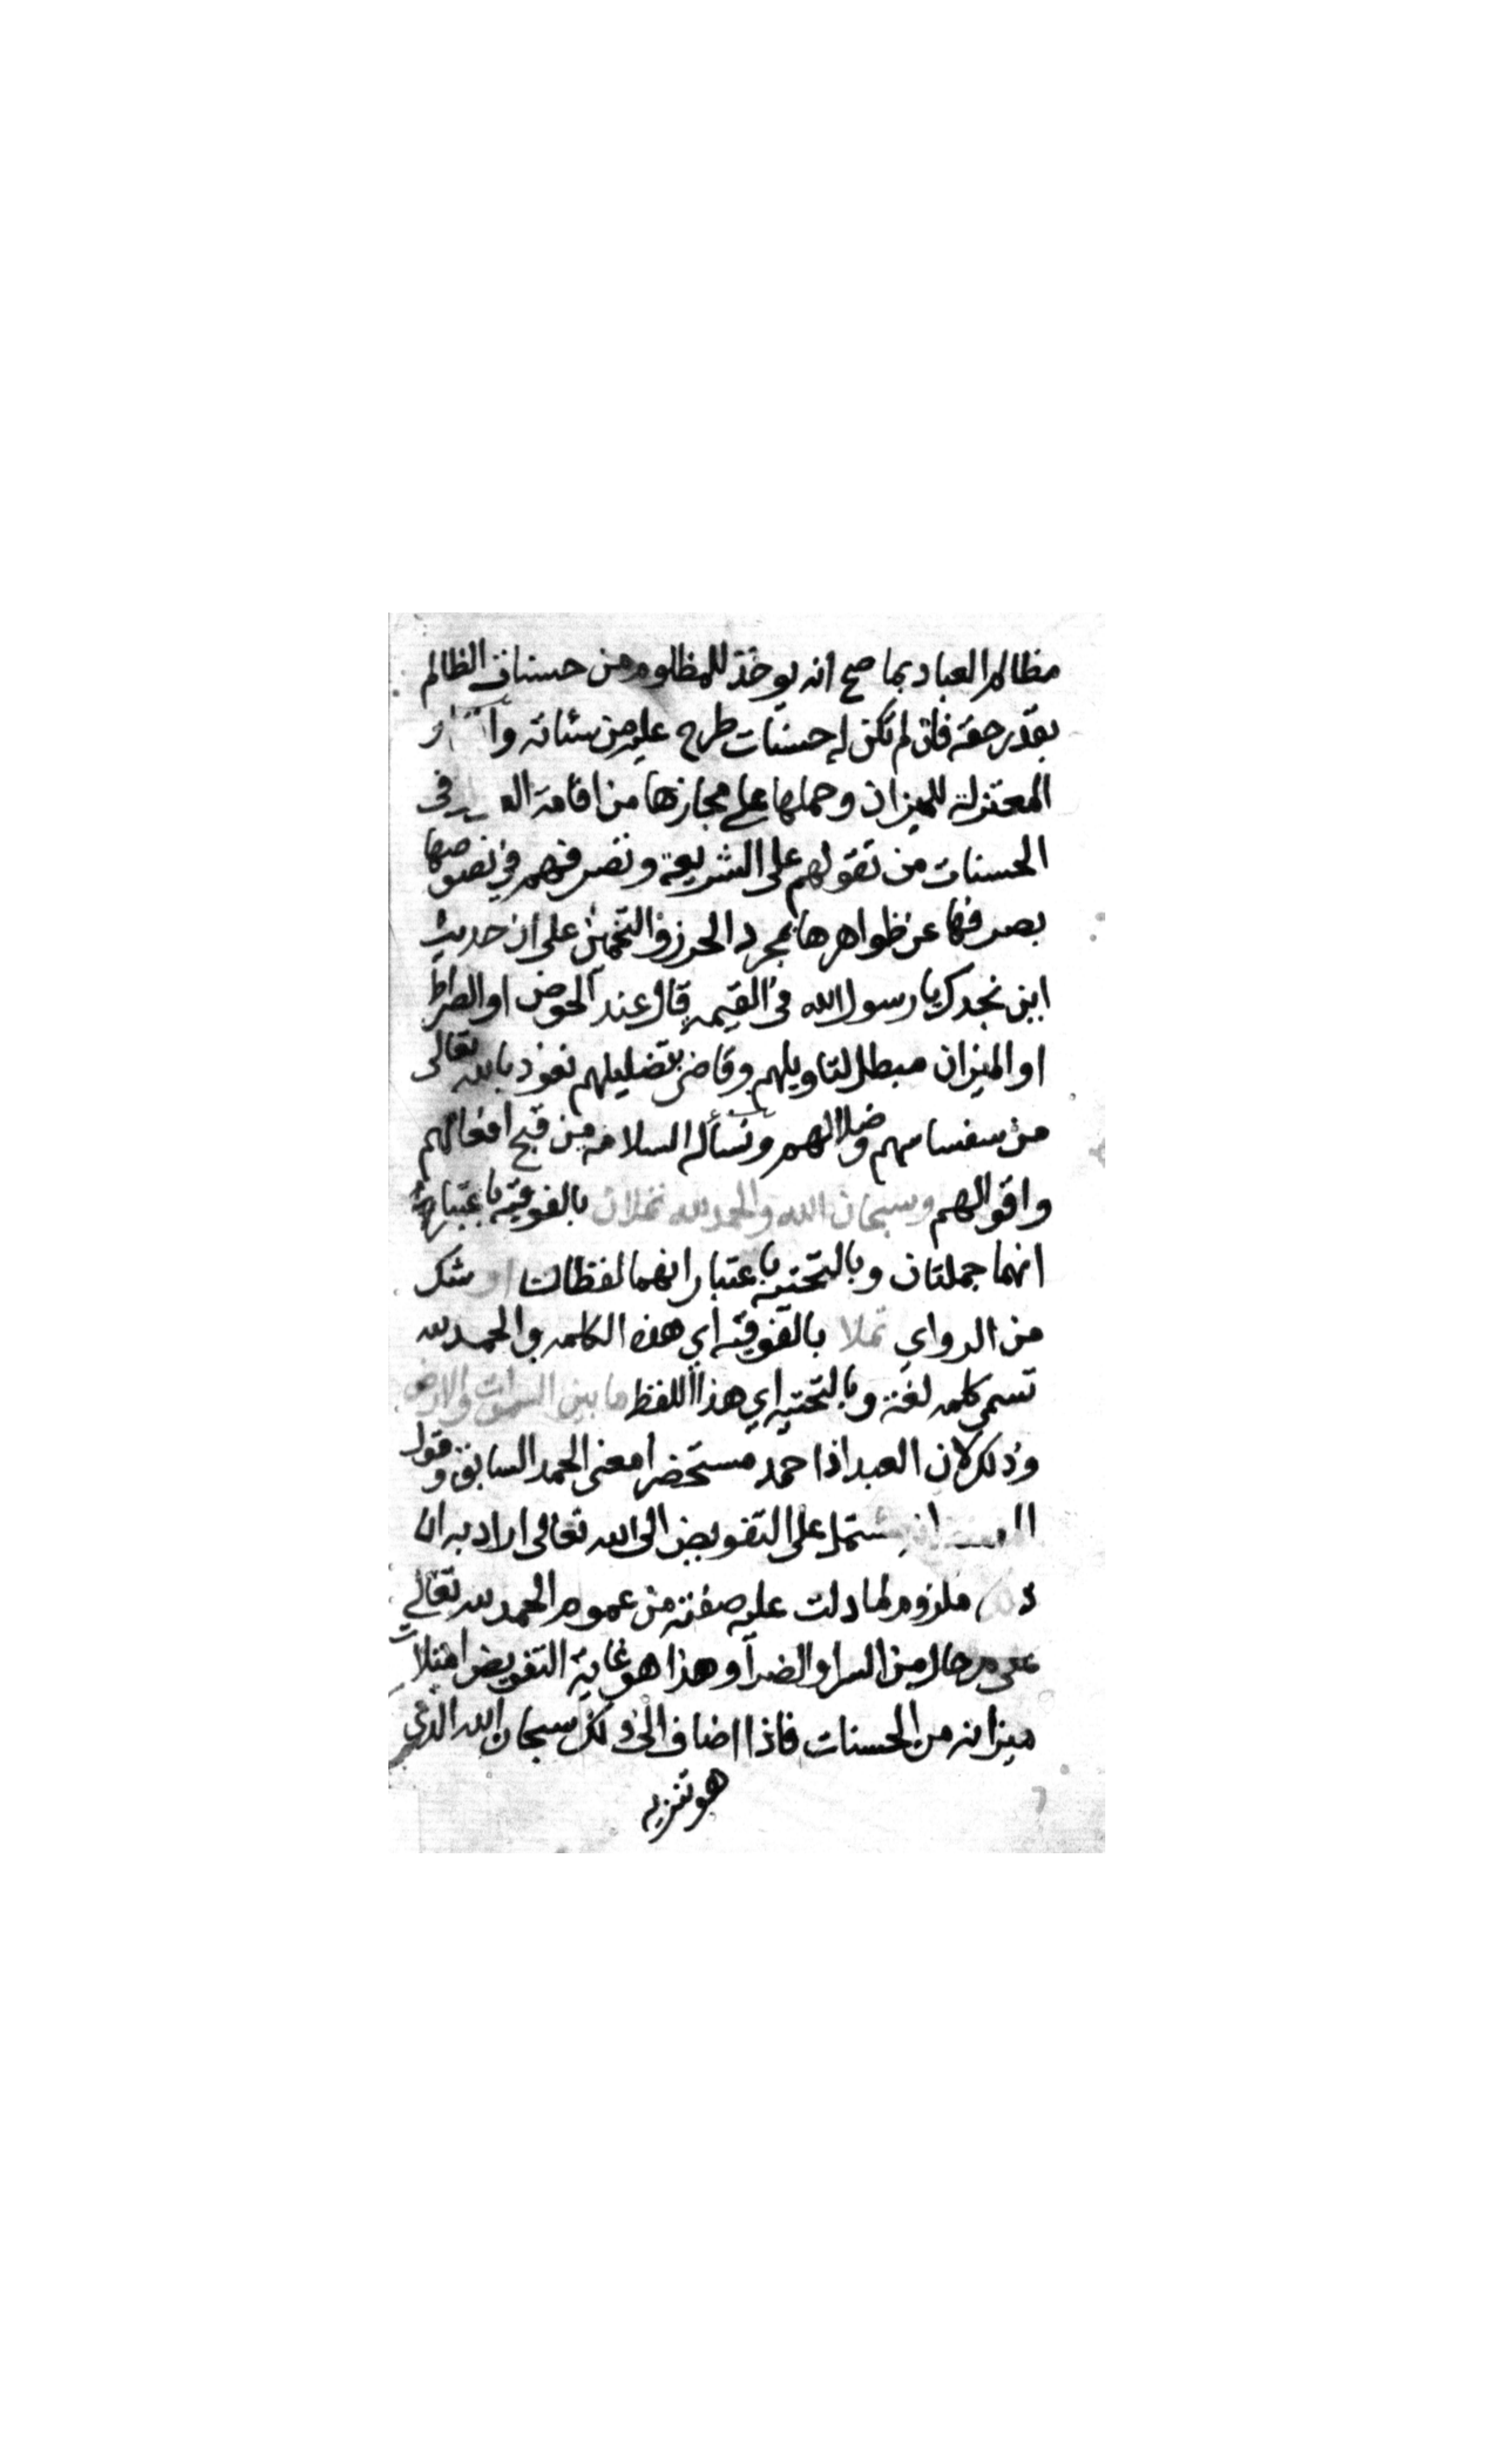 مظالم العباد بما صح انه يوخذ للمظلوم من حسنات الظالم
بقدر حقه فان لم تكن له حسنات طرح عليه من سئاته
المعتزلة للميزان وحملها على مجازها من اقامة في
الحسنات من تقولهم على الشريعة وتصرفهم في نصوصها
بصرفها عن ظواهرها بمجرد الحرز والتخمين على ان حديث
اين نجدك يا رسول الله في القيمه قال عند الحوض او الصراط
او الميزان مبطل لتاويلهم وقاض بتضليلهم نعوذ بالله تعالى
من وضلالهم ونسأله السلامه من قبح افعالهم
واقوالهم وسبحان الله والحمد لله تملان بالفوقية باعتبار
انهما جملتان وبالتحتيه باعتبار انهما لفظان او شك
من الرواي تملا بالفوقيه اي هذه الكلمه والحمد لله
تسمى كلمه لغة وبالتحتيه اي هذا اللفظ ما بين السموات والارض
وذلك لان العبد اذا حمد مستحضرا معنى الحمد السابق وقول
يشتمل على التفويض الى الله تعالى اراد به ان
ملزوم لما دلت عليه صفته من عموم الحمد لله تعالى
على حال من السرا والضرآ وهذا هو غاية التفويض امتلات
ميزانه من الحسنات فاذا اضاف الى ذلك سبحان الله الذي
هو تنزيه